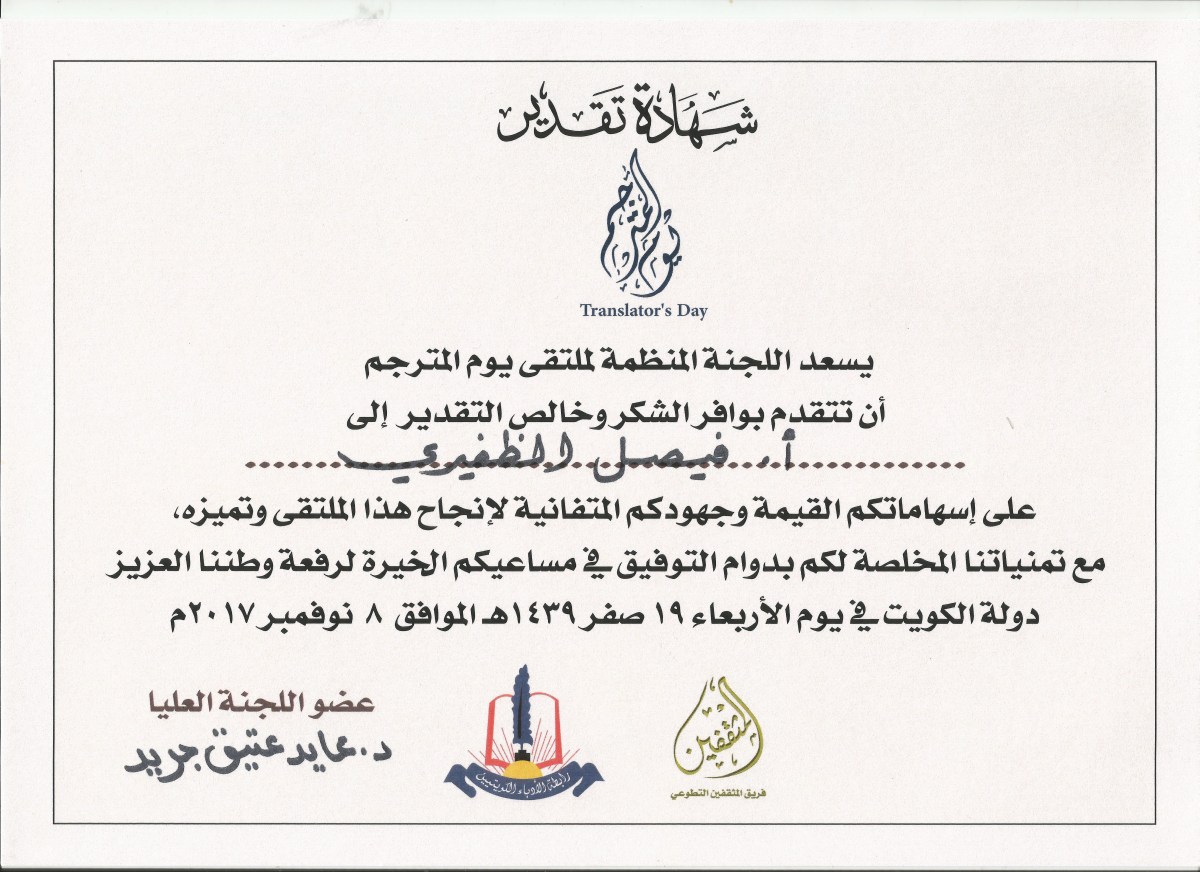 شَهَادَة تَقَدير
يوم المترجم
Translator's Day
يسعد اللجنة المنظمة لملتقى يوم المترجم
أن تتقدم بوافر الشكر وخالص التقدير إلى
أ. فيصل الظفيري
على إسهاماتكم القيمة وجهودكم المتفانية لإنجاح هذا الملتقى وتميزه،
مع تمنياتنا المخلصة لكم بدوام التوفيق في مساعيكم الخيرة لرفعة وطننا العزيز
دولة الكويت في يوم الأربعاء ١٩ صفر ١٤٣٩هـ الموافق ٨ نوفمبر ٢٠١٧م
المثقفين
فريق المثقفين التطوعي
رابطة الأدباء الكويتيين
عضو اللجنة العليا
د. عايد عتيق جريد